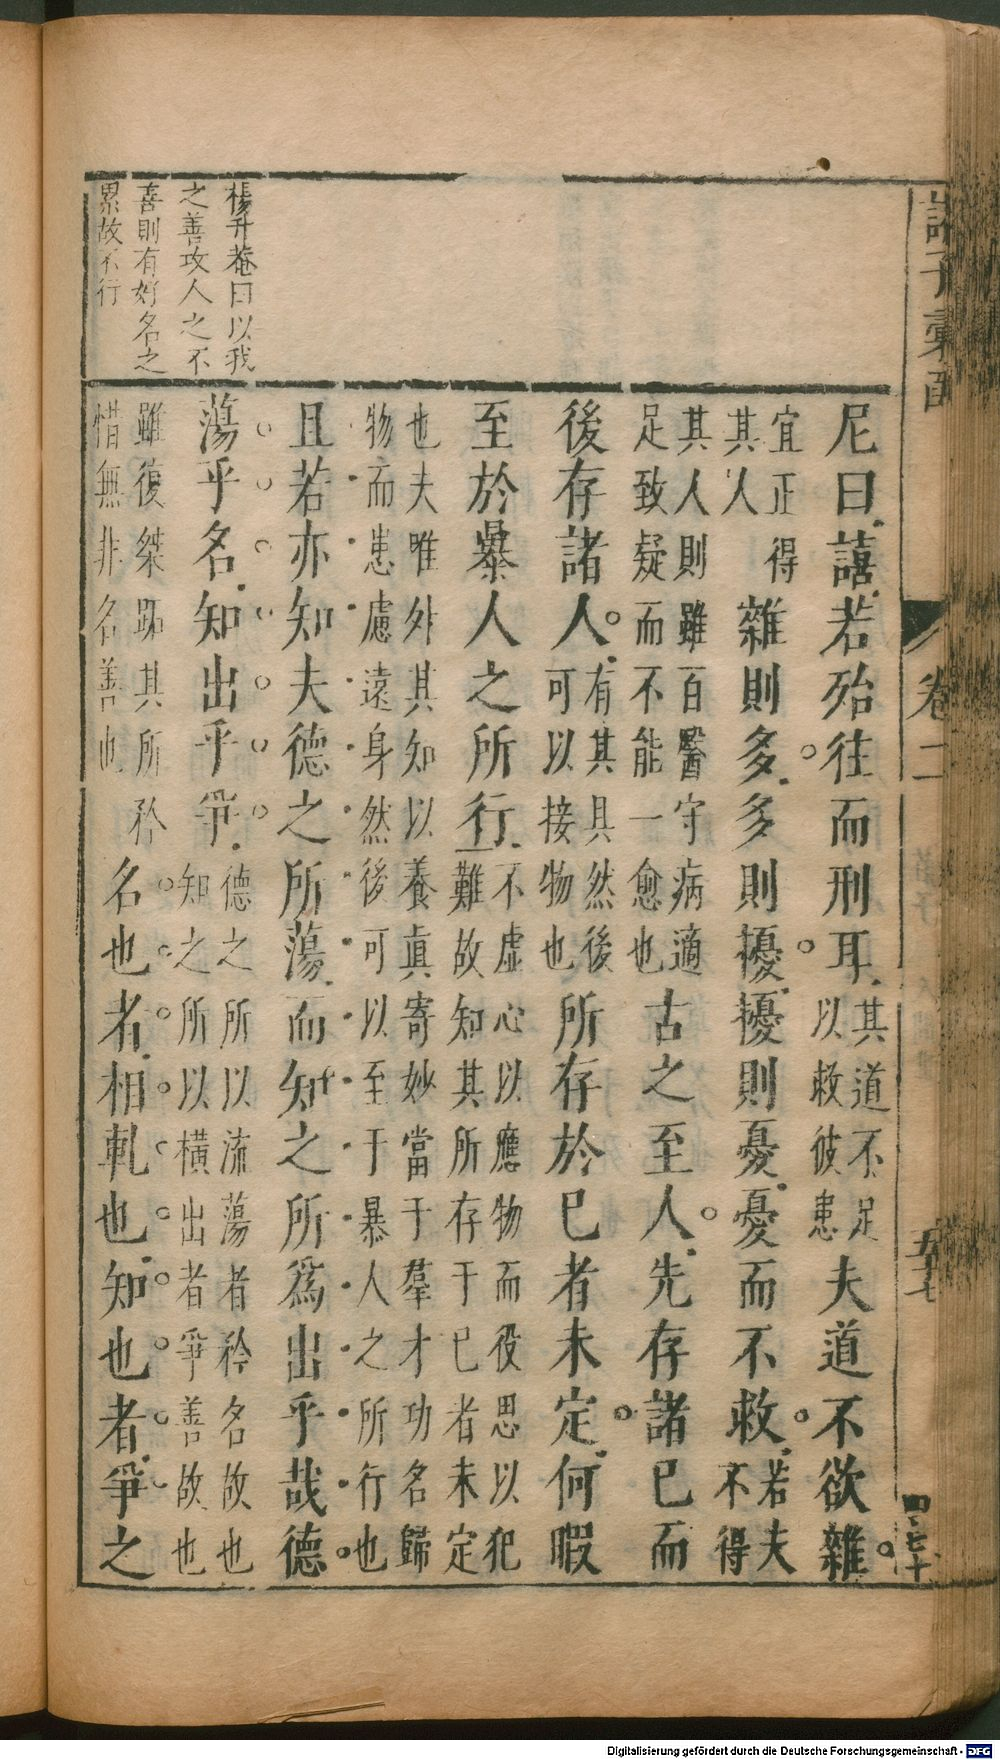 諸子彙函
卷二
五十七
楊升菴曰以我
之善攻人之不
善則有好名之
累故不行
尼曰譆若殆往而刑耳其道不足以救彼患夫道不欲雜
宜正得其人雜則多多則擾擾則憂憂而不救若夫不得
其人則雖百醫守病適足致疑而不能一愈也古之至人先存諸已而
後存諸人有其具然後可以接物也所存於已者未定何暇
至於暴人之所行不虛心以應物而役思以犯難故知其所存于已者未定
也夫唯外其知以養眞寄妙當于羣才功名歸物而患慮遠身然後可以至于暴人之所行也
且若亦知夫德之所蕩而知之所爲出乎哉德
蕩乎名知出乎爭德之所以流蕩者矜名故也知之所以橫出者爭善故也
雖復桀跖其所矜惜無非名善也名也者相軋也知也者爭之
Digitalisierung gefördert durch die Deutsche Forschungsgemeinschaft - DFG